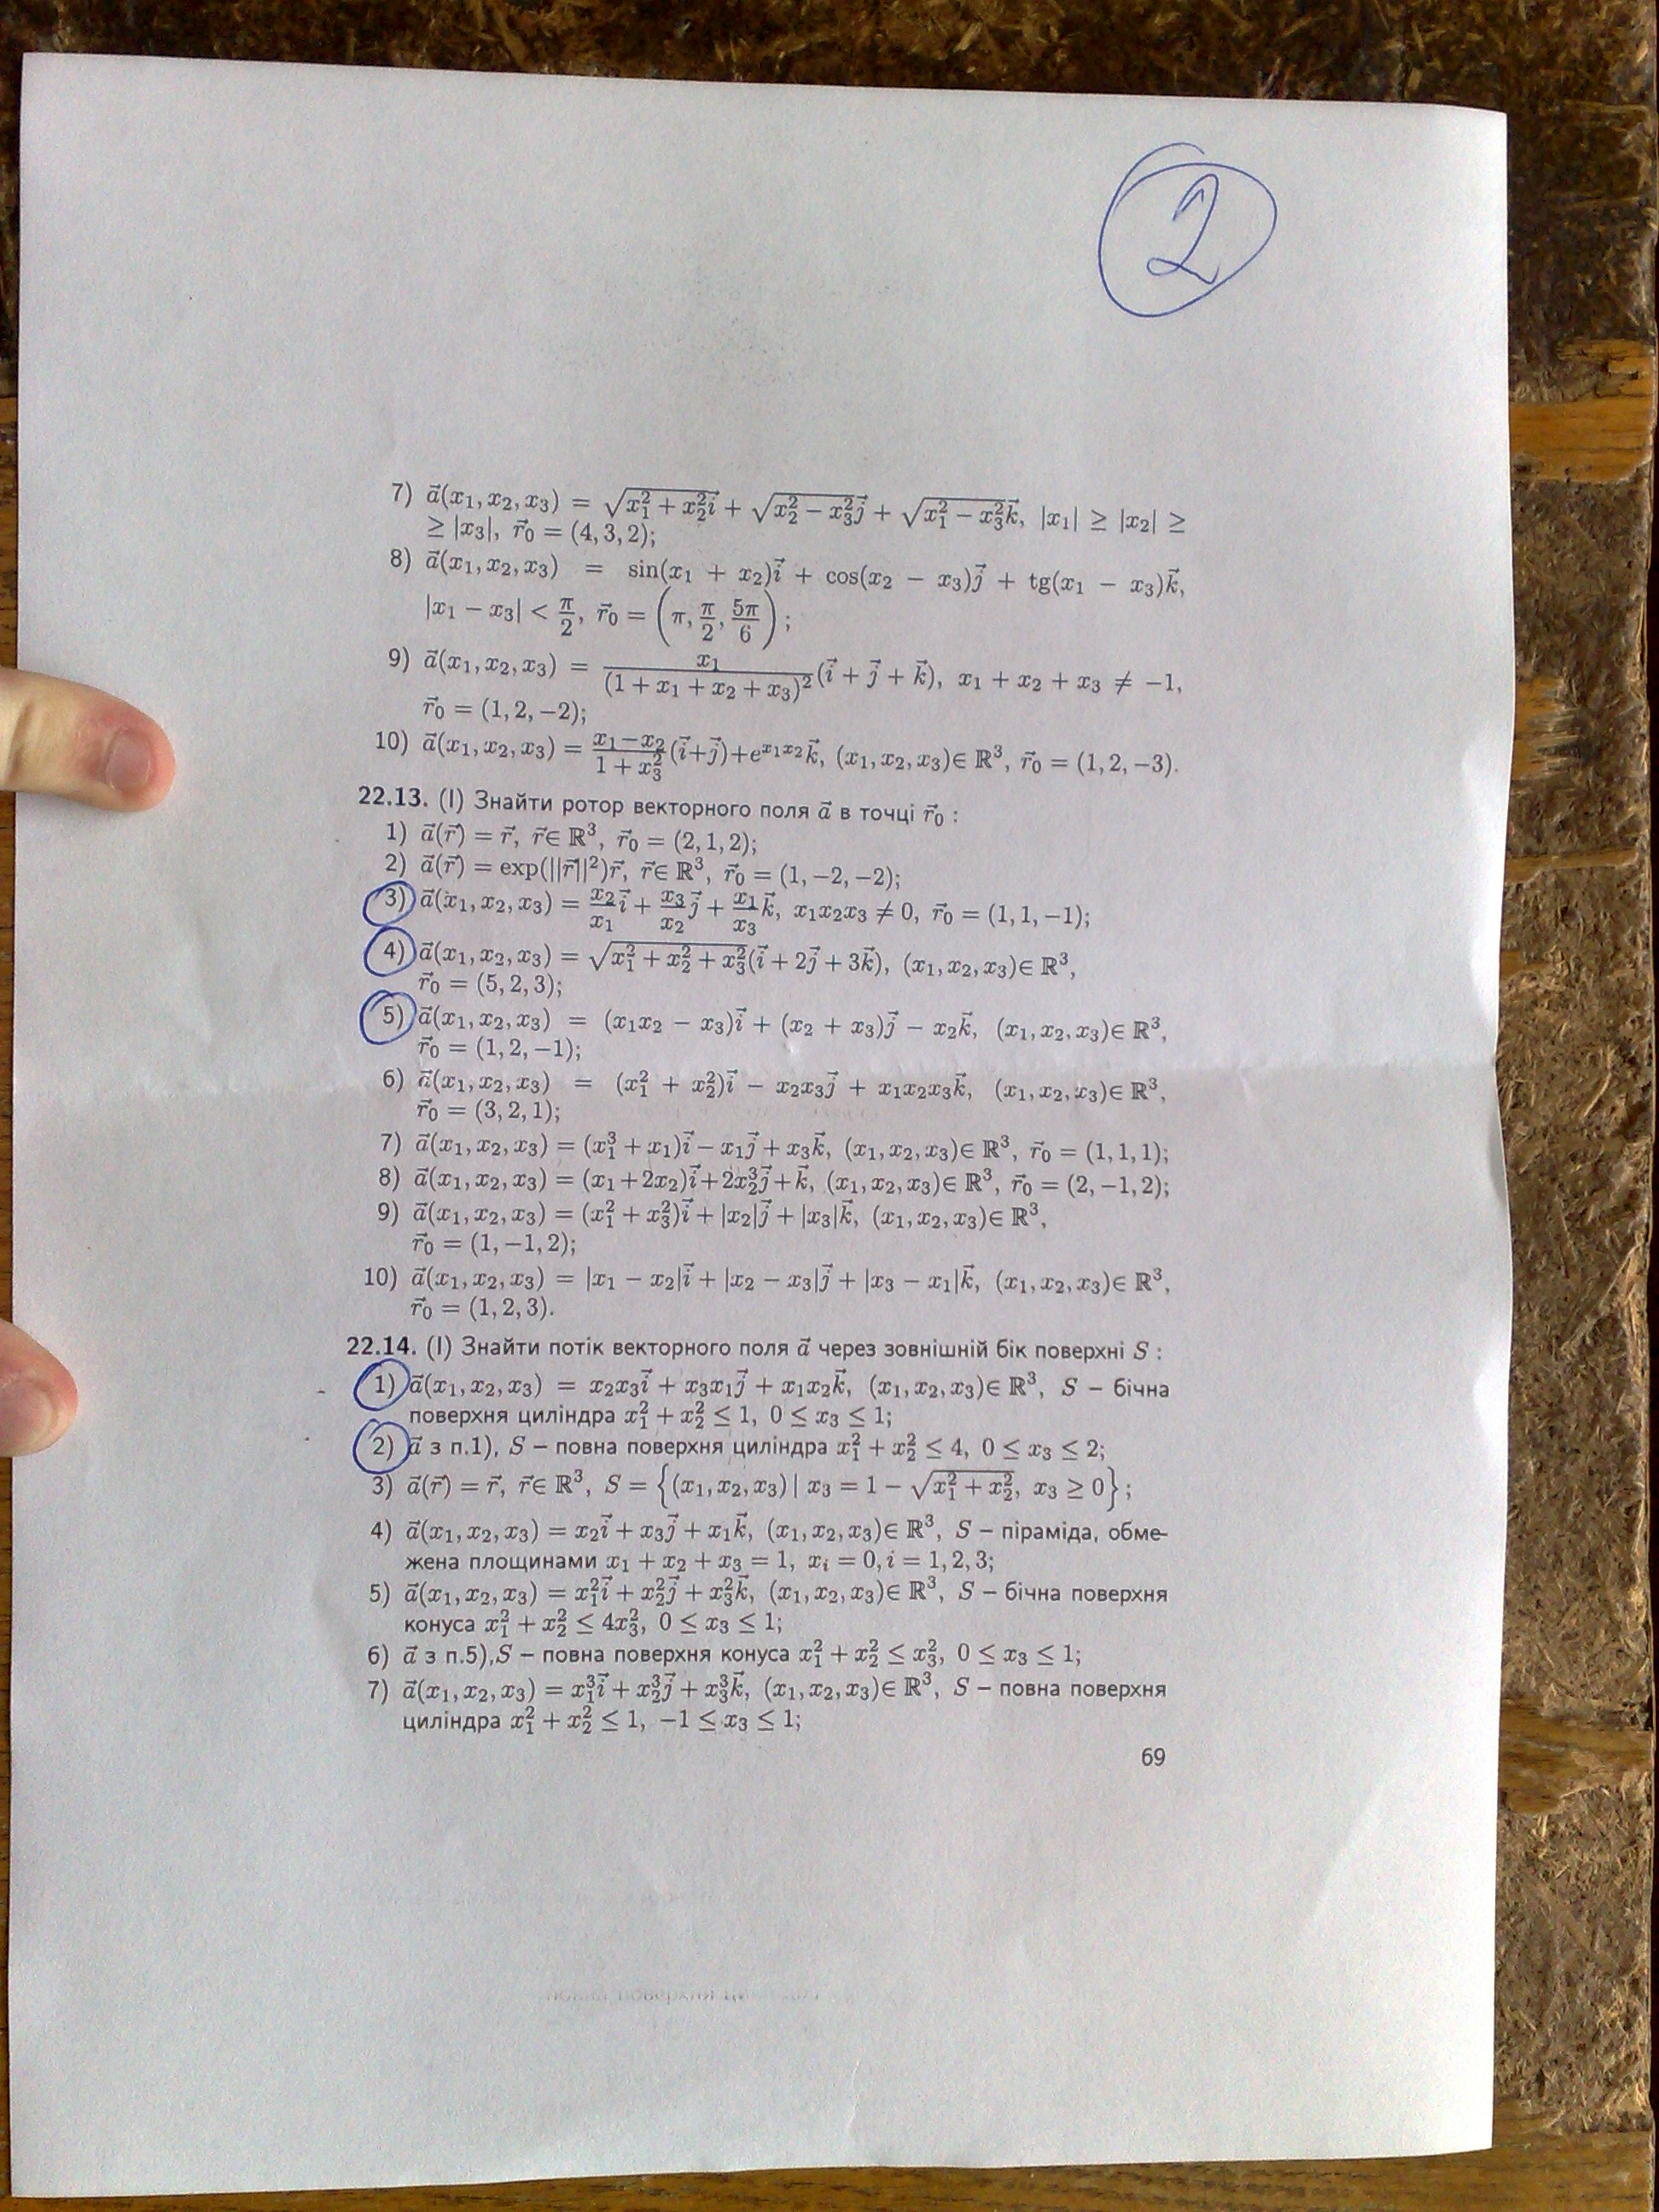 2
7) a⃗(x₁, x₂, x₃) = √(x₁² + x₂²) i⃗ + √(x₂² − x₃²) j⃗ + √(x₁² − x₃²) k⃗, |x₁| ≥ |x₂| ≥
≥ |x₃|, r⃗₀ = (4, 3, 2);
8) a⃗(x₁, x₂, x₃) = sin(x₁ + x₂)i⃗ + cos(x₂ − x₃)j⃗ + tg(x₁ − x₃)k⃗,
|x₁ − x₃| < π/2, r⃗₀ = (π, π/2, 5π/6);
9) a⃗(x₁, x₂, x₃) = x₁/(1 + x₁ + x₂ + x₃)² (i⃗ + j⃗ + k⃗), x₁ + x₂ + x₃ ≠ −1,
r⃗₀ = (1, 2, −2);
10) a⃗(x₁, x₂, x₃) = (x₁−x₂)/(1 + x₃²) (i⃗+j⃗)+e^(x₁x₂)k⃗, (x₁, x₂, x₃)∈ ℝ³, r⃗₀ = (1, 2, −3).
22.13. (I) Знайти ротор векторного поля a⃗ в точці r⃗₀ :
1) a⃗(r⃗) = r⃗, r⃗∈ ℝ³, r⃗₀ = (2, 1, 2);
2) a⃗(r⃗) = exp(||r⃗||²)r⃗, r⃗∈ ℝ³, r⃗₀ = (1, −2, −2);
3) a⃗(x₁, x₂, x₃) = x₂/x₁ i⃗ + x₃/x₂ j⃗ + x₁/x₃ k⃗, x₁x₂x₃ ≠ 0, r⃗₀ = (1, 1, −1);
4) a⃗(x₁, x₂, x₃) = √(x₁² + x₂² + x₃²)(i⃗ + 2j⃗ + 3k⃗), (x₁, x₂, x₃)∈ ℝ³,
r⃗₀ = (5, 2, 3);
5) a⃗(x₁, x₂, x₃) = (x₁x₂ − x₃)i⃗ + (x₂ + x₃)j⃗ − x₂k⃗, (x₁, x₂, x₃)∈ ℝ³,
r⃗₀ = (1, 2, −1);
6) a⃗(x₁, x₂, x₃) = (x₁² + x₂²)i⃗ − x₂x₃j⃗ + x₁x₂x₃k⃗, (x₁, x₂, x₃)∈ ℝ³,
r⃗₀ = (3, 2, 1);
7) a⃗(x₁, x₂, x₃) = (x₁³ + x₁)i⃗ − x₁j⃗ + x₃k⃗, (x₁, x₂, x₃)∈ ℝ³, r⃗₀ = (1, 1, 1);
8) a⃗(x₁, x₂, x₃) = (x₁+2x₂)i⃗+2x₂³j⃗+k⃗, (x₁, x₂, x₃)∈ ℝ³, r⃗₀ = (2, −1, 2);
9) a⃗(x₁, x₂, x₃) = (x₁² + x₃²)i⃗ + |x₂|j⃗ + |x₃|k⃗, (x₁, x₂, x₃)∈ ℝ³,
r⃗₀ = (1, −1, 2);
10) a⃗(x₁, x₂, x₃) = |x₁ − x₂|i⃗ + |x₂ − x₃|j⃗ + |x₃ − x₁|k⃗, (x₁, x₂, x₃)∈ ℝ³,
r⃗₀ = (1, 2, 3).
22.14. (I) Знайти потік векторного поля a⃗ через зовнішній бік поверхні S :
1) a⃗(x₁, x₂, x₃) = x₂x₃i⃗ + x₃x₁j⃗ + x₁x₂k⃗, (x₁, x₂, x₃)∈ ℝ³, S – бічна
поверхня циліндра x₁² + x₂² ≤ 1, 0 ≤ x₃ ≤ 1;
2) a⃗ з п.1), S – повна поверхня циліндра x₁² + x₂² ≤ 4, 0 ≤ x₃ ≤ 2;
3) a⃗(r⃗) = r⃗, r⃗∈ ℝ³, S = {(x₁, x₂, x₃) | x₃ = 1 − √(x₁² + x₂²), x₃ ≥ 0};
4) a⃗(x₁, x₂, x₃) = x₂i⃗ + x₃j⃗ + x₁k⃗, (x₁, x₂, x₃)∈ ℝ³, S – піраміда, обме-
жена площинами x₁ + x₂ + x₃ = 1, xᵢ = 0, i = 1, 2, 3;
5) a⃗(x₁, x₂, x₃) = x₁²i⃗ + x₂²j⃗ + x₃²k⃗, (x₁, x₂, x₃)∈ ℝ³, S – бічна поверхня
конуса x₁² + x₂² ≤ 4x₃², 0 ≤ x₃ ≤ 1;
6) a⃗ з п.5),S – повна поверхня конуса x₁² + x₂² ≤ x₃², 0 ≤ x₃ ≤ 1;
7) a⃗(x₁, x₂, x₃) = x₁³i⃗ + x₂³j⃗ + x₃³k⃗, (x₁, x₂, x₃)∈ ℝ³, S – повна поверхня
циліндра x₁² + x₂² ≤ 1, −1 ≤ x₃ ≤ 1;
69